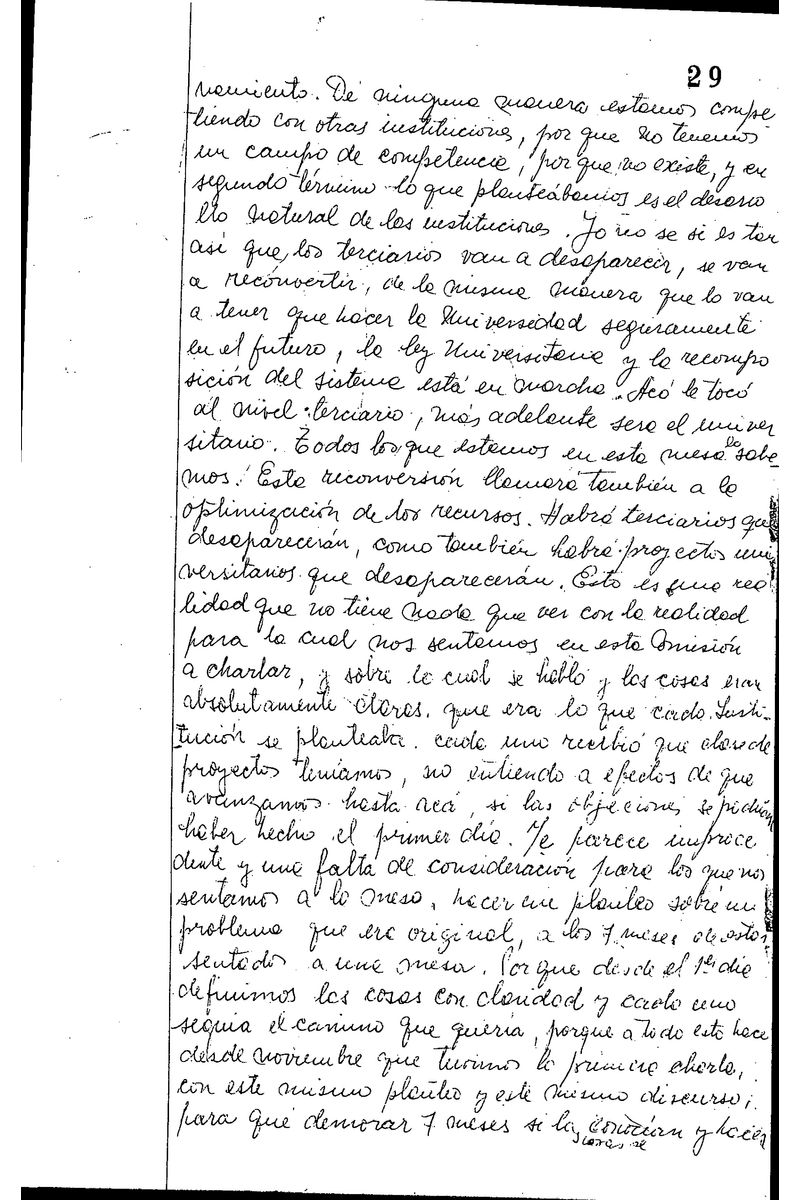 29
namiento. De ninguna manera estamos compe
tiendo con otras instituciones, por que no tenemos
un campo de competencia, por que no existe, y en
segundo término lo que planteábamos es el desarro
llo natural de las instituciones. Yo no se si es tan
así que, los terciarios van a desaparecer, se van
a reconvertir, de la misma manera que lo van
a tener que hacer la Universidad seguramente
en el futuro, la ley Universitaria y la recompo
sición del sistema está en marcha. Acá le tocó
al nivel terciario, más adelante sera el univer
sitario. Todos los que estamos en esta mesa lo sabe-
mos. Esta reconversión llamará también a la
optimización de los recursos. Habrá terciarios que
desaparecerán, como también habrá proyectos uni
versitarios que desaparecerán. Esto es una rea
lidad que no tiene nada que ver con la realidad
para la cual nos sentamos en esta Comisión
a charlar, y sobre lo cual se habló y las cosas eran
absolutamente claras, que era lo que cada Insti-
tución se planteaba. cada uno recibió que clase de
proyectos teníamos, no entiendo a efectos de que
avanzamos hasta acá, si las objeciones se podrían
haber hecho el primer día. Me parece improce
dente y una falta de consideración para los que nos
sentamos a la mesa, hacer un planteo sobre un
problema que era original, a los 7 meses de estar
sentados a una mesa. Porque desde el 1er día
definimos las cosas con claridad y cada uno
seguía el camino que quería, porque a todo esto hace
desde noviembre que tuvimos la primera charla,
con este mismo planteo y este mismo discurso,
para qué demorar 7 meses si la conocían y hacer